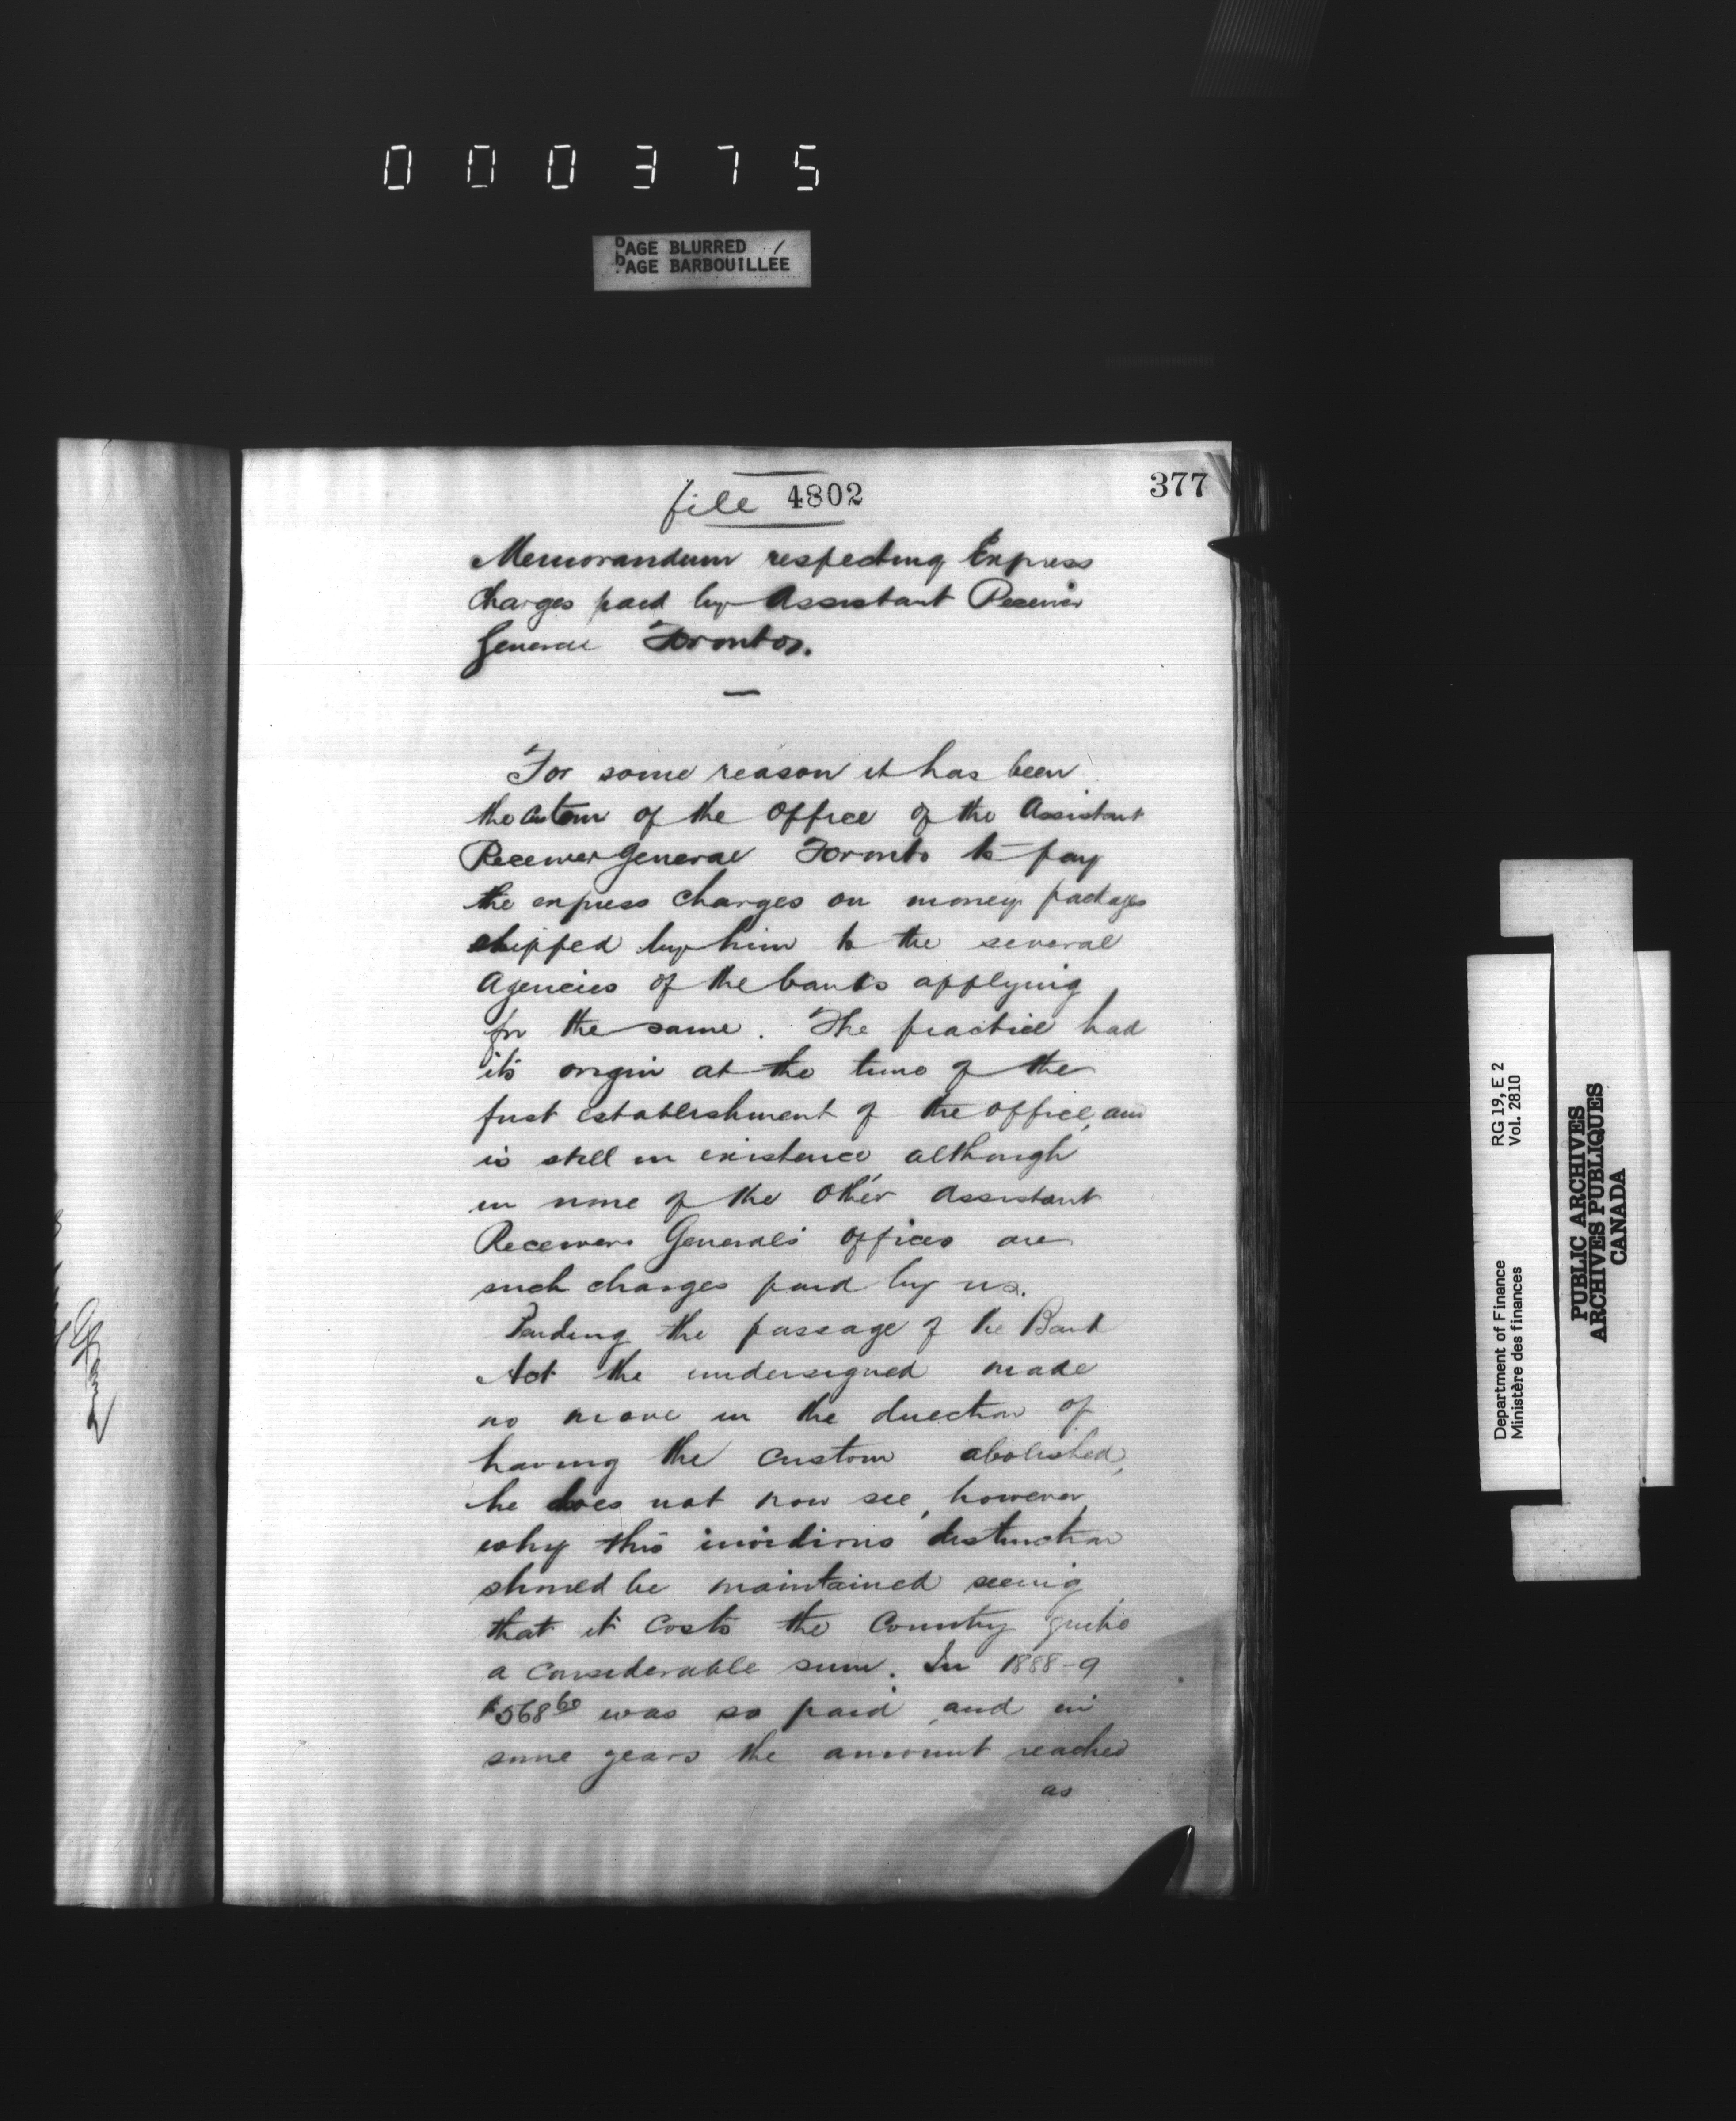 0 0 0 3 7 5
PAGE BLURRED
PAGE BARBOUILLÉE
377
file 4802
Memorandum respecting Express
Charges paid by Assistant Receiver
General Toronto.
For some reason it has been
the custom of the Office of the Assistant
Receiver General Toronto to pay
the express charges on money packages
shipped by him to the several
Agencies of the banks applying
for the same. The practice had
its origin at the time of the
first establishment of the office, and
is still in existence, although
in none of the other Assistant
Receivers General's offices are
such charges paid by us.
Pending the passage of the Bank
Act the undersigned made
no move in the direction of
having the custom abolished,
he does not now see, however,
why this invidious distinction
should be maintained seeing
that it costs the Country quite
a considerable sum. In 1888-9
$568 60 was so paid, and in
some years the amount reached
as
Department of Finance
Ministère des finances
RG 19, E 2
Vol. 2810
PUBLIC ARCHIVES
ARCHIVES PUBLIQUES
CANADA